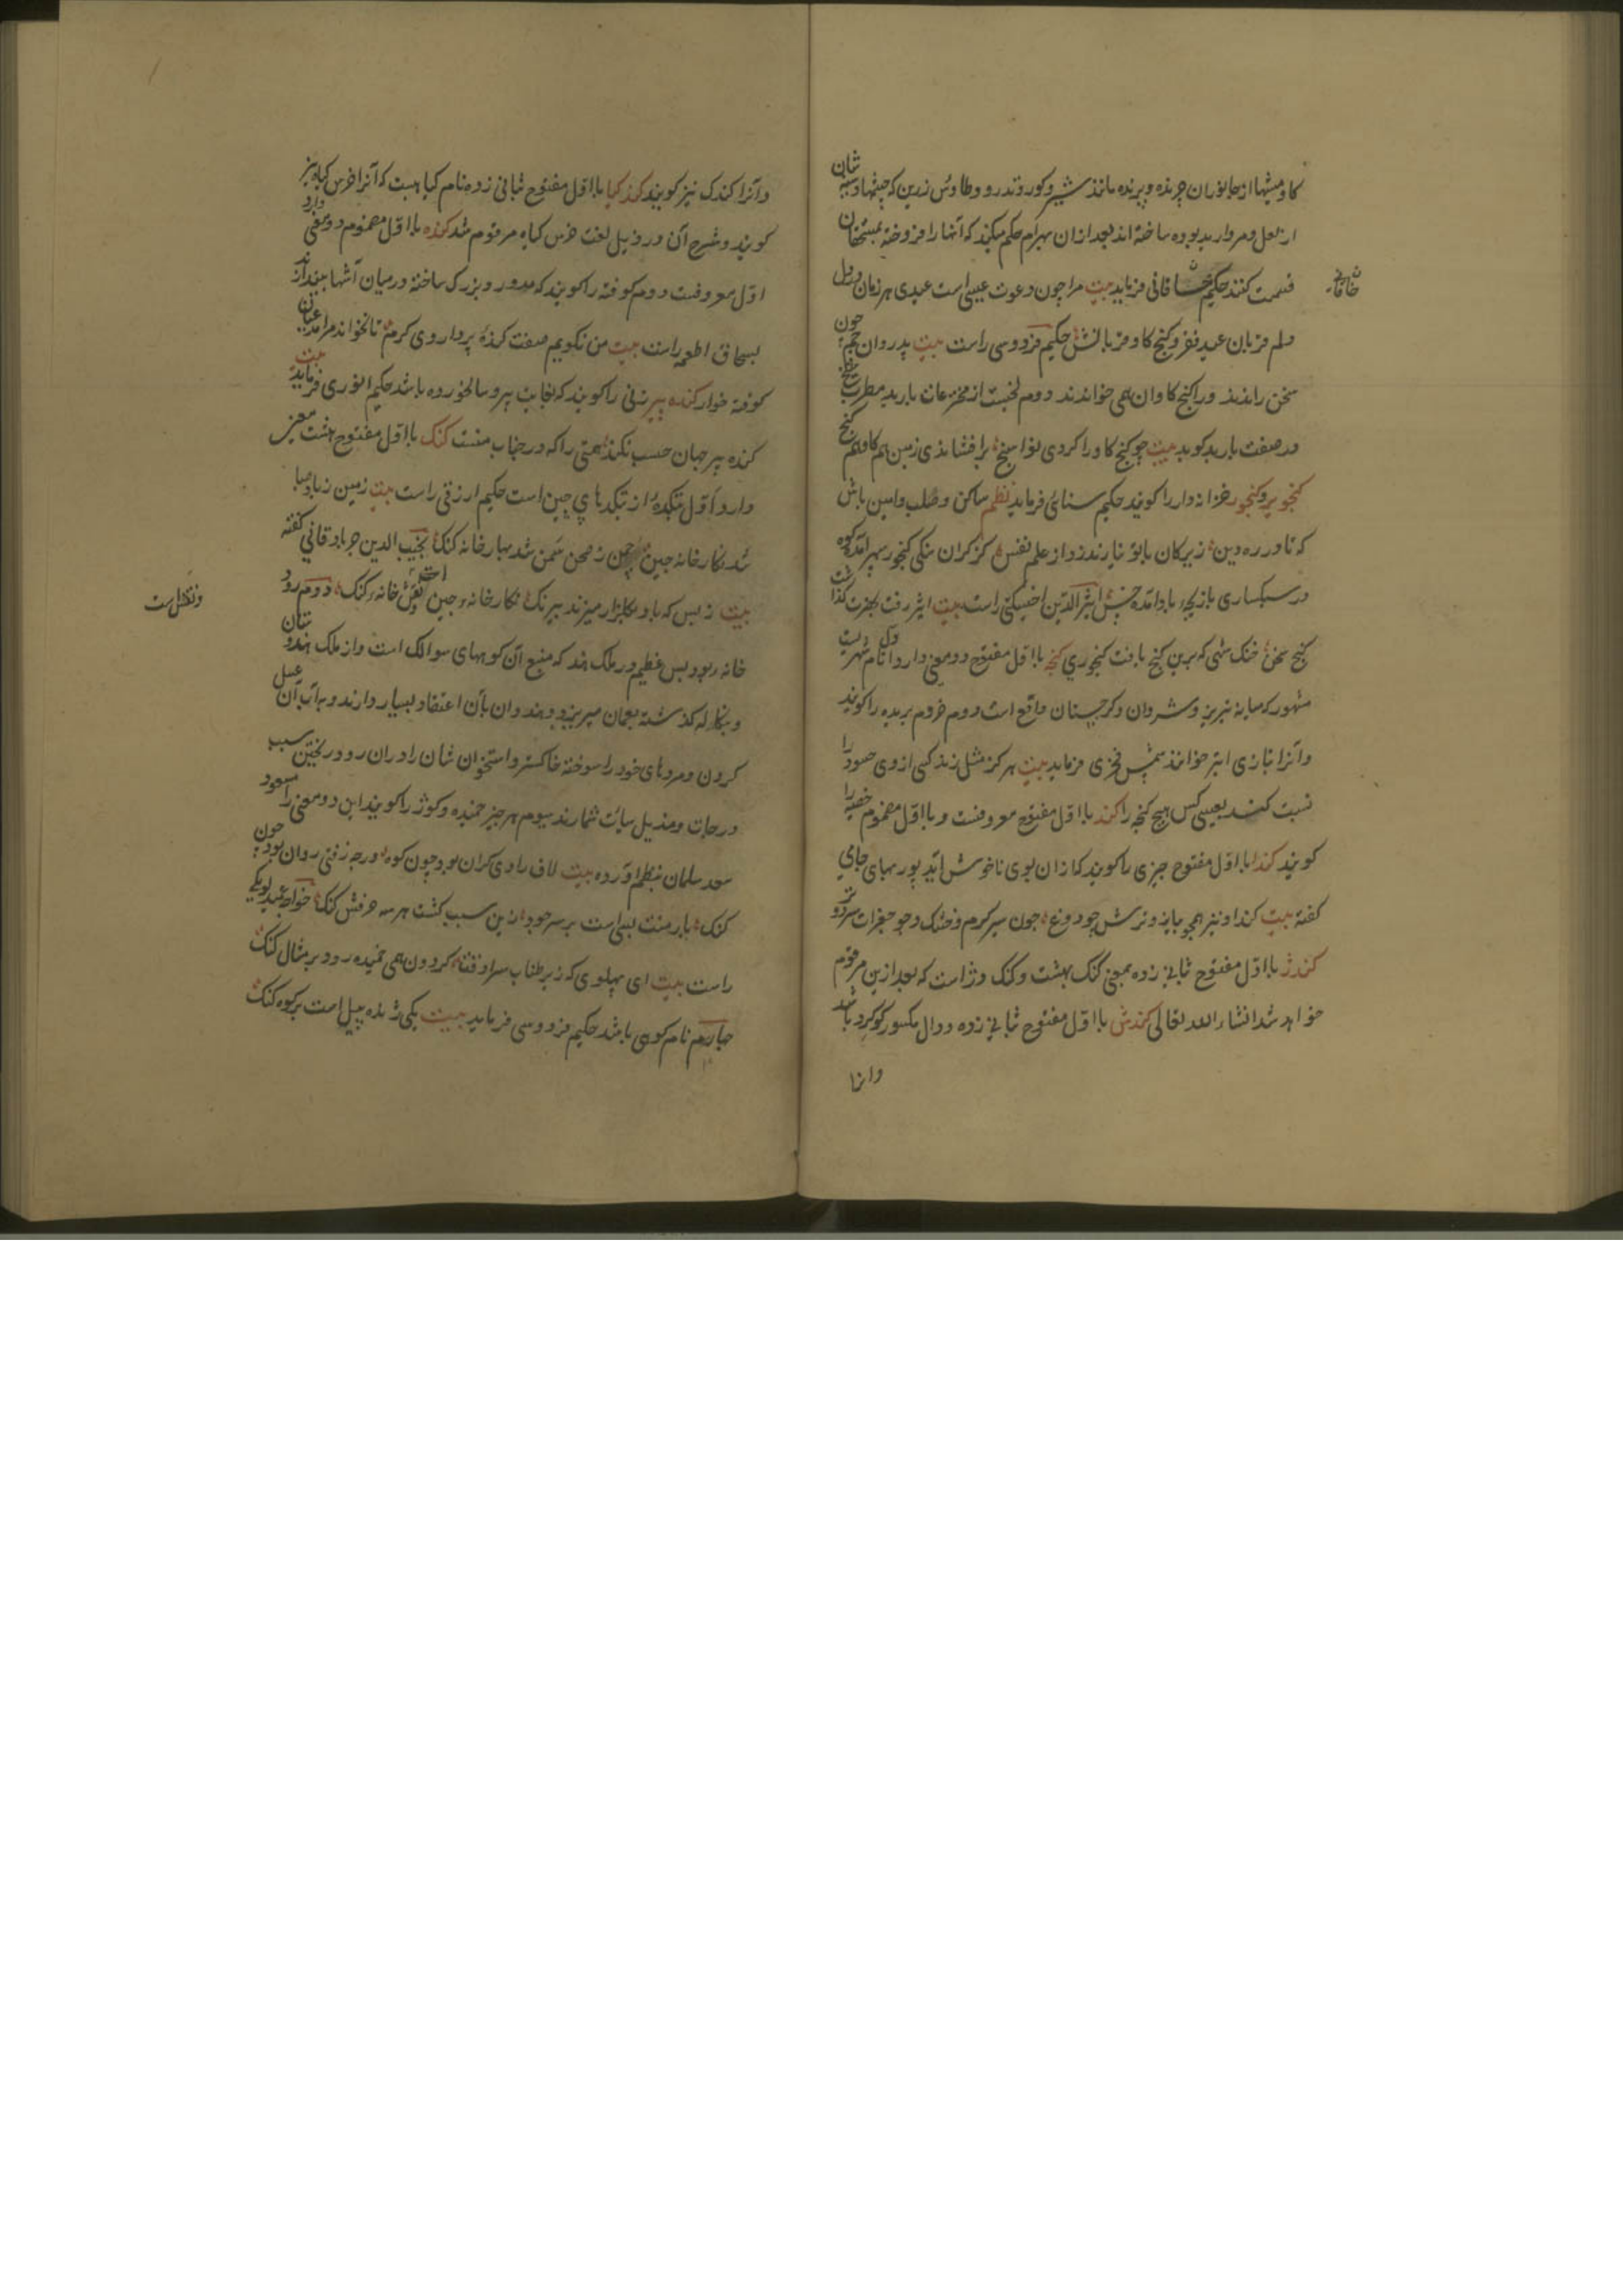 کاومیشها از جانوران چرنده و پرنده مانند شیر و کور و تذرو و طاوس زرین که چشمها و سینه شان
از لعل و مروارید بوده ساخته اند بعد ازان بهرام حکم میکند که آنها را فروخته بمستحقان
قسمت کنند حکیم خاقانی فرماید بیت مرا چون دعوت عیسی است عیدی هر زمان در دل
دلم قربان عید فقر و کنج کاو قربانش حکیم فردوسی راست بیت پدر وان چون
سخن راندند ورا کنج کاوان همی خواندند دوم لخنیست از مخترعات باربد مطرب
در صفت باربد کوید بیت چو کنج کاو را کردی نوا سنج برافشاندی زمین هم کاو هم کنج
کنجویر و کنجور خزانه دار را کویند حکیم سنائی فرماید نظم ساکن و صلب و امین باش
که تا در ره دین زیرکان با تو نیارند زد از علم نفس کز کران سنکی کنجور سپهر آمد کوه
در سبکساری بازیچه باد آمده خس اثیرالدین اخسیکتی راست بیت
کنج سخن خنک شهی که برین کنج یافت کنجوری کنجه با اول مفتوح دو معنی دارد اول نام شهریست
مشهور که میانه تبریز و شروان و کرجستان واقع است دوم خر دم بریده را کویند
وآنرا بتازی ابتر خوانند شمس فخری فرماید بیت هرکز مثل زند کسی از روی حسود را
نسبت کنند بعیسی کس هیچ کنجه را کند با اول مفتوح معروفست و با اول مضموم خصیه را
کویند کندا با اول مفتوح چیزی را کویند که ازان بوی ناخوش آید پور بهای جامی
کفته بیت کندا و نیز همچو پیاز و ترش چو دوغ چون سیر کرم و خشک و چو جغرات سرد و تر
کندژ با اول مفتوح بثانی زده بمعنی کنک بهشت و کنک دژ است که بعد ازین مرقوم
خواهد شد انشاء الله تعالی کندش با اول مفتوح بثانی زده و دال مکسور کوکرد باشد
وانرا
خاقانی
وآنرا کندک نیز کویند کندکیا با اول مفتوح بثانی زده نام کیاهیست که آنرا خرس کیاه نیز
کویند و شرح آن در ذیل لغت خرس کیاه مرقوم شد کنده با اول مضموم دو معنی دارد
اول معروفست دوم کوفته را کویند که مدور و بزرک ساخته در میان آشها بیندازند
بسحاق اطعمه راست بیت من نکویم صفت کنده پرداروی کرم تا نخوانند مرا
کوفته خوار کنده پیر زنی را کویند که بغایت پیر و سالخورده باشد حکیم انوری فرماید بیت
کنده پیر جهان حسب نکند همتی را که در جناب منست کنک با اول مفتوح هشت معنی
دارد اول بتکده از بتکدهای چین است حکیم ازرقی راست بیت زمین ز باد صبا
شد نکارخانه چین چمن ز صحن سمن شد بهارخانه کنک نجیب الدین جرباذقانی کفته
بیت ز بس که باد بکلزار میزند نیرنک نکارخانه چین نقش خانه کنک دوم رود
خانه بود بس عظیم در ملک هند که منبع آن کوههای سوالک است و از ملک هندوستان
و بنکاله کذشته بعمان میریزد و هندوان بآن اعتقاد بسیار دارند و بر آب آن غسل
کردن و مردهای خود را سوخته خاکستر و استخوان شان را دران رود ریختن سبب
درجات و مزیل سیآت شمارند سیوم هر چیز خمیده و کوژ را کویند این دو معنی را مسعود
سعد سلمان بنظم آورده بیت لاف رادی کران بود چون کوه ور چه زفتی روان بود چون
کنک بار منت بسی است بر سر جود زین سبب کشت هر سه حرفش کنک خواجه عمید لوبکی
راست بیت ای پهلوی که زیر طناب سرادقت کردون همی خمیده رود بر مثال کنک
چهارم نام کوهی باشد حکیم فردوسی فرماید بیت یکی ژنده پیل است بر کوه کنک